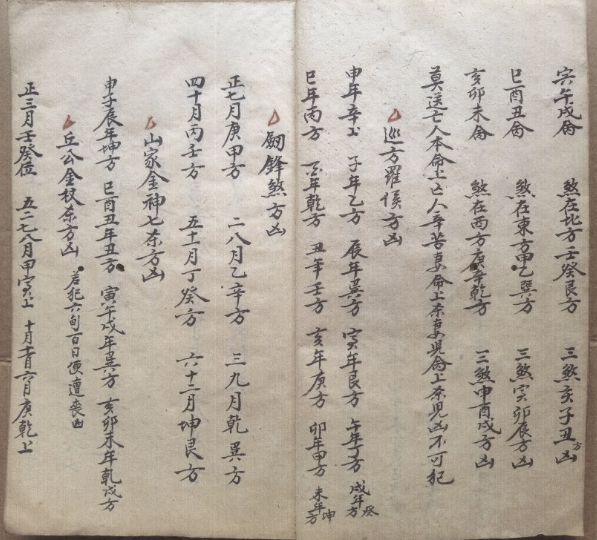 寅午戌命 煞在北方壬癸艮方 三煞亥子丑方凶
巳酉丑命 煞在東方甲乙巽方 三煞寅卯辰方凶
亥卯未命 煞在西方庚辛乾方 三煞申酉戌方凶
莫送亡人本命上亡人辛苦妻命上杀妻児命上杀児凶不可犯
巡方羅候方凶
申年辛方 子年乙方 辰年巽方 寅年艮方 午年丁方 戌年癸方
巳年丙方 酉年乾方 丑年壬方 亥年庚方 卯年甲方 未年坤方
劍鋒煞方凶
正七月庚甲方 二八月乙辛方 三九月乾巽方
四十月丙壬方 五十一月丁癸方 六十二月坤艮方
山家金神七杀方凶
申子辰年坤方 巳酉丑年丑方 寅午戌年巽方 亥卯未年乾戌方
丘公金杖杀方凶 若犯六旬百日便遭喪凶
正三月壬癸位 五二七八月甲寅上 十月十一月六月庚乾上